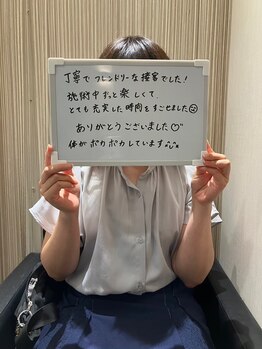 丁寧でフレンドリーな接客でした!
施術中ずっと楽しくて、
とても充実した時間をすごせました☺
ありがとうございました♡
体がポカポカしています♨